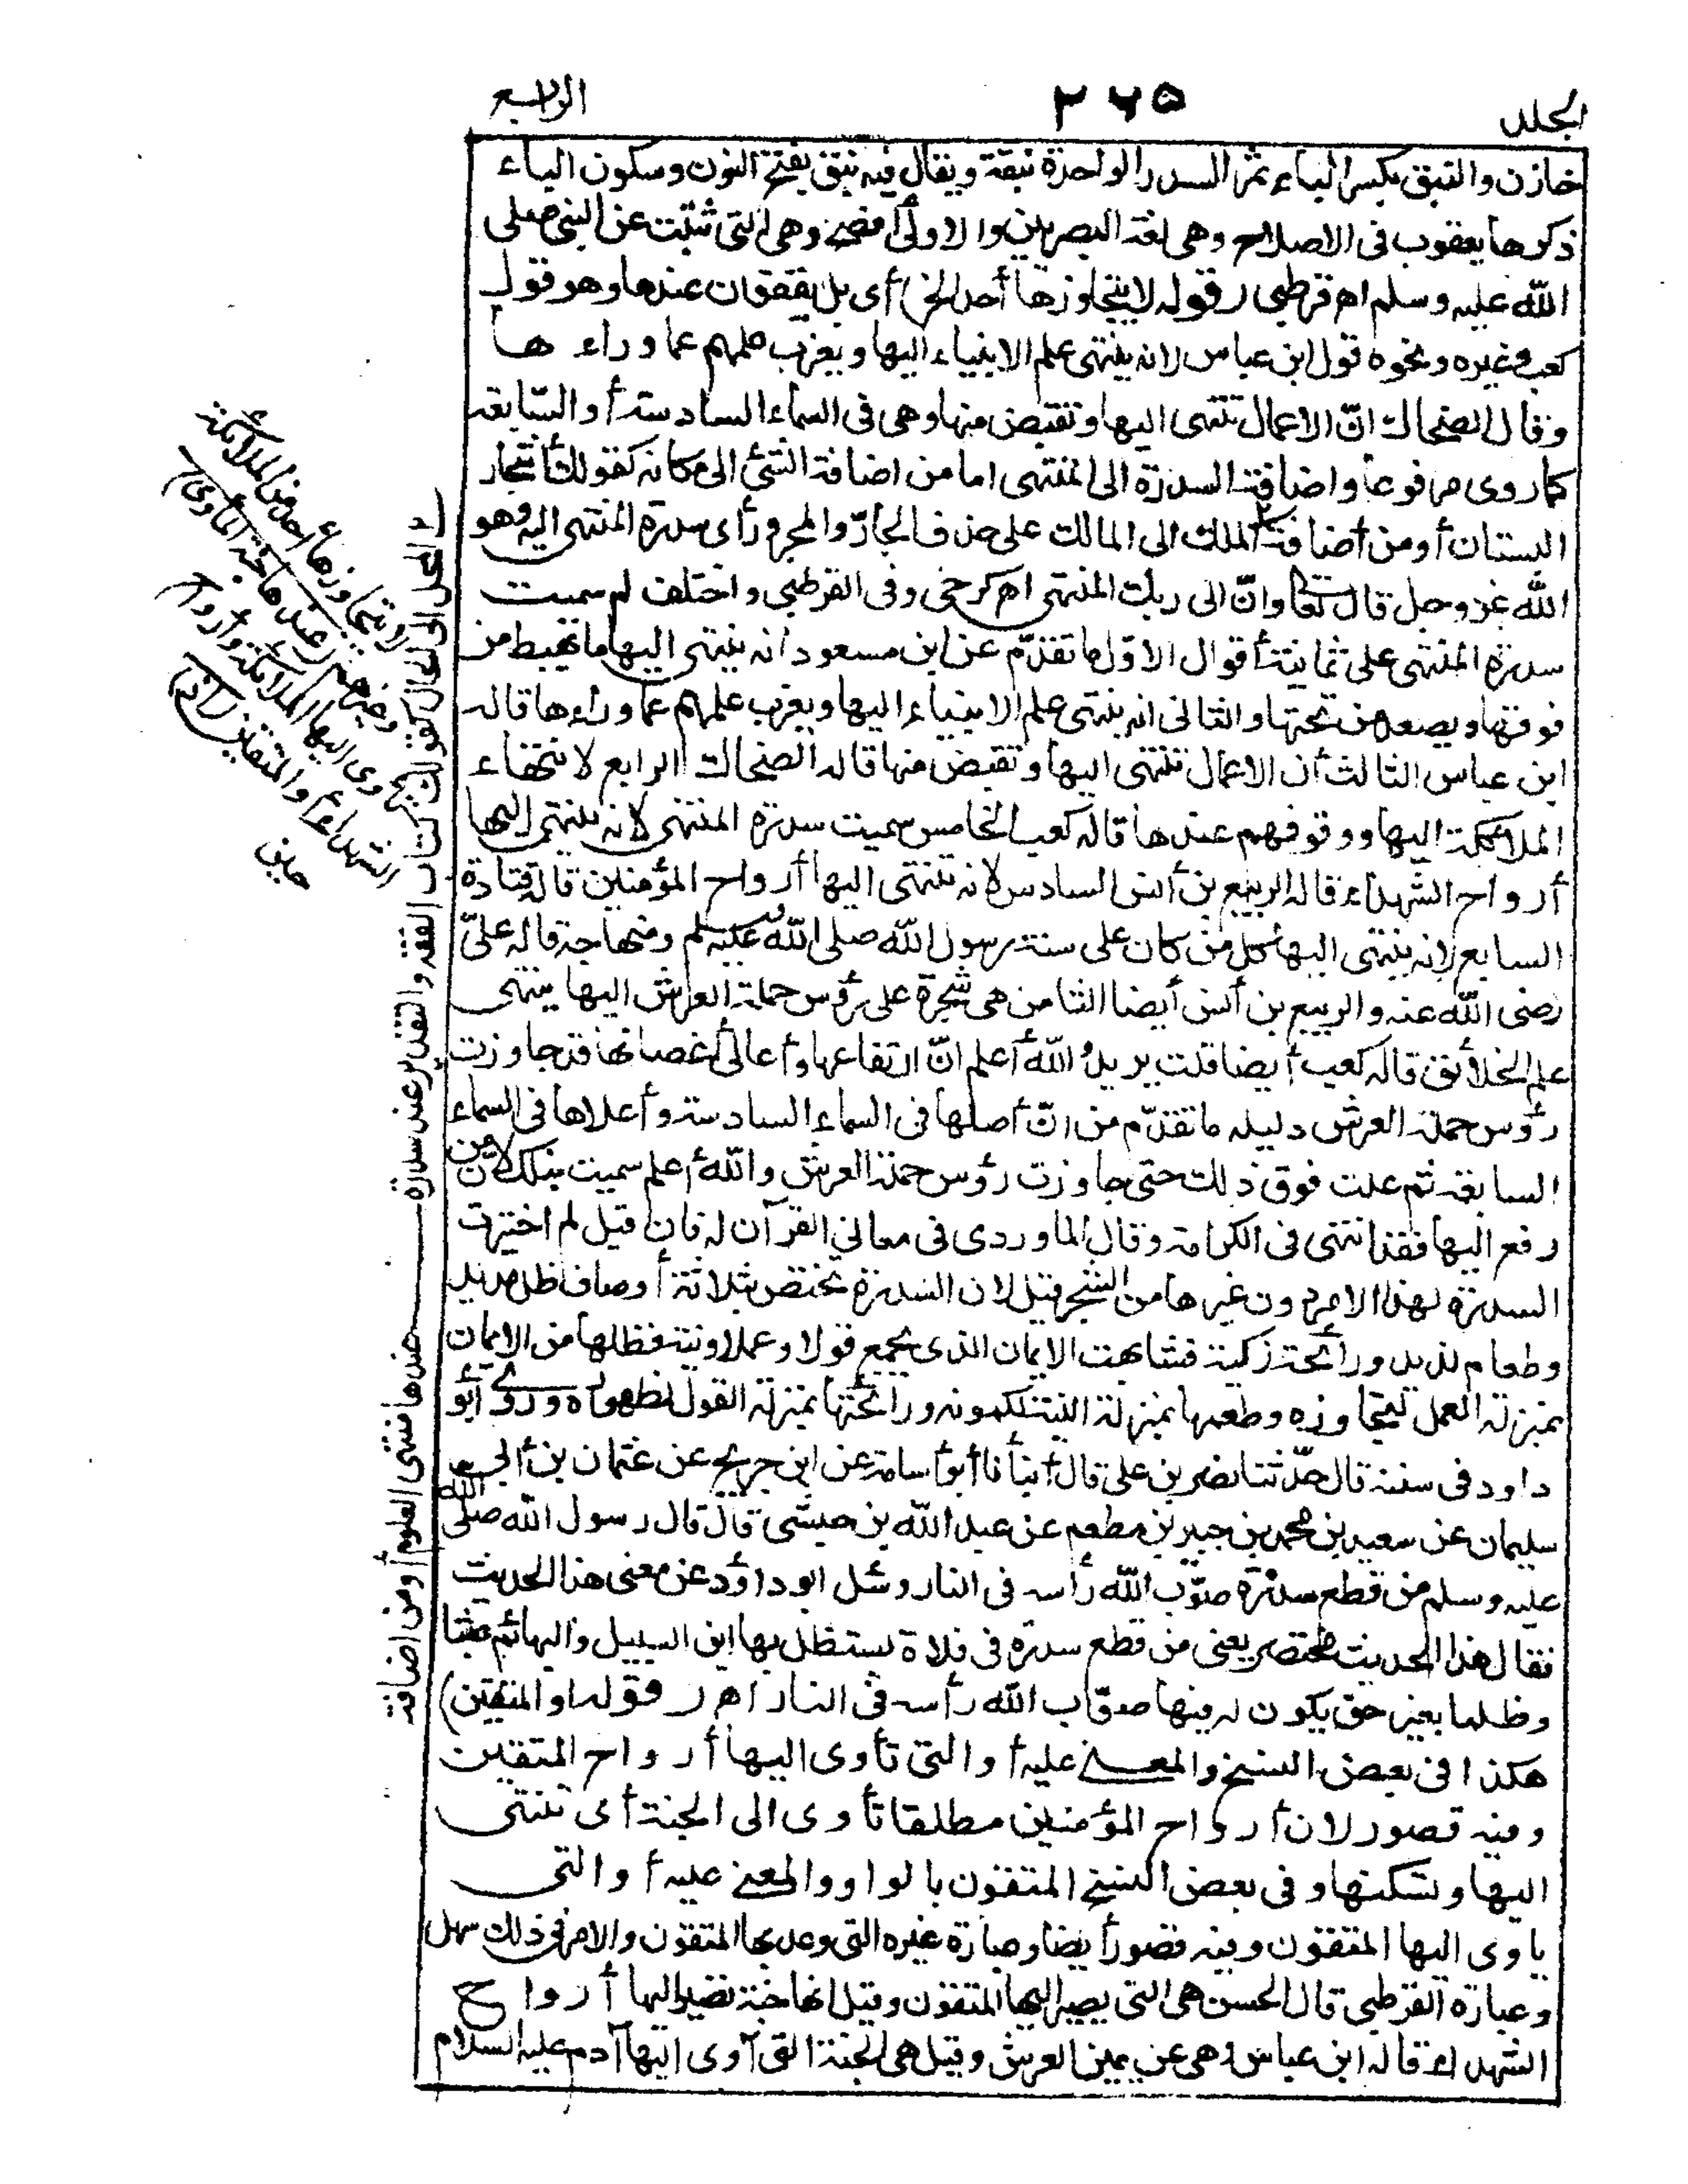 المجلد
٢٦٥
الرابع
خازن والنبق بكسر الباء ثمر السدر الواحدة نبقة ويقال فيه نبق بفتح النون وسكون الباء
ذكرها يعقوب فى الاصلاح وهى لغة البصريين والاولى أفصح وهى التى ثبتت عن النبى صلى
الله عليه وسلم اه قرطبى (قوله لا يتجاوزها أحد الخ) أى بل يقفون عندها وهو قول
كعب وغيره ونحوه قول ابن عباس لانه ينتهى علم الانبياء اليها ويعزب علمهم عما وراءها
وقال الضحاك انّ الاعمال تنتهى اليها وتقبض منها وهى فى السماء السادسة أو السّابعة
كما روى مرفوعا واضافة السدرة الى المنتهى اما من اضافة الشئ الى مكانه كقولك أشجار
البستان أو من أضافة الملك الى المالك على حذف الجارّ والمجرور أى سدرة المنتهى اليه وهو
الله عز وجل قال تعالى وانّ الى ربك المنتهى اه كرخى وفى القرطبى واختلف لم سميت
سدرة المنتهى على ثمانية أقوال الاوّل ما تقدّم عن ابن مسعود انه ينتهى اليها ما يهبط من
فوقها ويصعد من تحتها والثانى انه ينتهى علم الانبياء اليها ويعزب علمهم عما وراءها قاله
ابن عباس الثالث أن الاعمال تنتهى اليها وتقبض منها قاله الضحاك الرابع لانتهاء
الملائكة اليها ووقوفهم عندها قاله كعب الخامس سميت سدرة المنتهى لانه ينتهى اليها
أرواح الشهداء قاله الربيع بن أنس السادس لانه تنتهى اليها أرواح المؤمنين قاله قتادة
السابع لانه ينتهى اليها كل من كان على سنة رسول الله صلى الله عليه وسلم ومنهاجه قاله علىّ
رضى الله عنه والربيع بن أنس أيضا الثامن هى شجرة على رؤس حملة العرش اليها ينتهى
علم الخلائق قاله كعب أيضا قلت يريد والله أعلم انّ ارتفاعها وأعالى أغصانها قد جاوزت
رؤس حملة العرش دليله ما تقدّم من انّ أصلها فى السماء السادسة وأعلاها فى السماء
السابعة ثم علت فوق ذلك حتى جاوزت رؤس حملة العرش والله أعلم سميت بذلك لان من
رفع اليها فقد انتهى فى الكرامة وقال الماوردى فى معانى القرآن له فان قيل لم اختيرت
السدرة لهذا الامر دون غيرها من الشجر قيل لان السدرة تختص بثلاثة أوصاف ظل مديد
وطعام لذيذ ورائحة زكية فشابهت الايمان الذى يجمع قولا وعملا ونية فظلها من الايمان
بمنزلة العمل لتجاوزه وطعمها بمنزلة النية لكمونه ورائحتها بمنزلة القول لظهوره وروى أبو
داود فى سننه قال حدّثنا نصر بن على قال أنبأنا أبو أسامة عن ابن جريج عن عثمان بن أبى
سليمان عن سعيد بن محمد بن جبير بن مطعم عن عبد الله بن حبشى قال قال رسول الله صلى الله
عليه وسلم من قطع سدرة صوّب الله رأسه فى النار وسئل ابو داؤد عن معنى هذا الحديث
فقال هذا الحديث مختصر يعنى من قطع سدرة فى فلاة يستظل بها ابن السبيل والبهائم عبثا
وظلما بغير حق يكون له فيها صوّب الله رأسه فى النار اه (قوله او المتقين)
هكذا فى بعض النسخ والمعنى عليه أو التى تأوى اليها أرواح المتقين
وفيه قصور لان أرواح المؤمنين مطلقا تأوى الى الجنة أى تنتهى
اليها وتسكنها وفى بعض النسخ المتقون بالواو والمعنى عليه أو التى
ياوى اليها المتقون وفيه قصور أيضا وعبارة غيره التى وعد بها المتقون والامر فى ذلك سهل
وعبارة القرطبى قال الحسن هى التى يصير اليها المتقون وقيل انها جنة تصير اليها أرواح
الشهداء قاله ابن عباس وهى عن يمين العرش وقيل هى الجنة التى آوى اليها آدم عليه السلام
لا يتجاوزها أحد من الملائكة
وغيرهم (عندها جنة المأوى)
تأوى اليها الملائكة وأرواح
الشهداء أو المتقين (اذ)
حين
المحل الى الحال كقولك كتاب الفقه والتقدير عند سدرة عندها منتهى العلوم أو من اضافة